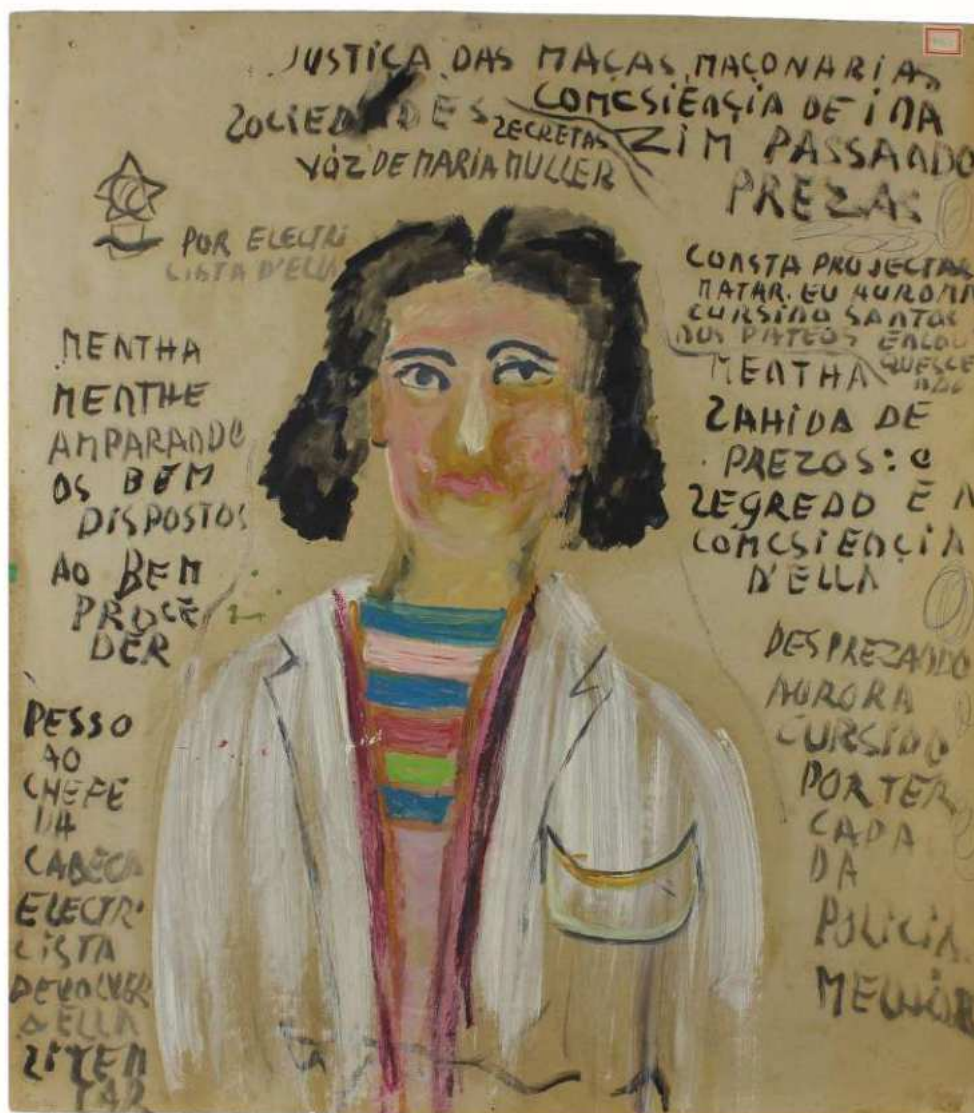 JUSTIÇA DAS MAÇAS, MAÇONARIAS
ZOCIEDADES ZECRETAS
VÓZ DE MARIA MULLER
COMCSIENÇIA DE
ZIM PASSANDO
PREZAS
POR ELECTRI
CISTA D'ELLA
MENTHA
MENTHE
AMPARANDO
OS BEM
DISPOSTOS
AO BEM
PROCE
DER
PESSO
AO
CHEFE
DA
CABEÇA
ELECTRI
CISTA
DEVOLVER
D ELLA
CONSTA PROJECTAR
MATAR. EU AURORA
CURSINO SANTOS
NOS PATEOS ENLOU
QUESCE
MENTHA
ZAHIDA DE
PREZOS: O
ZEGREDO E A
COMCSIENÇIA
D'ELLA
DESPREZANDO
AURORA
CURSINO
POR TER
CADA
DA
POLICIA
MELHOR